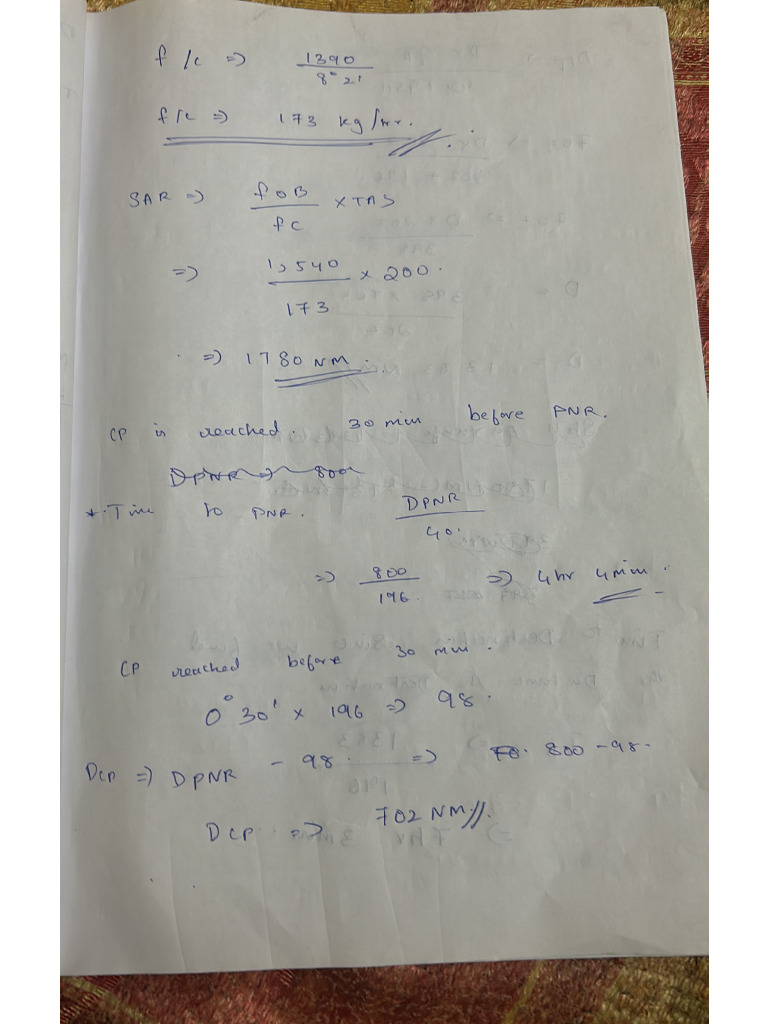 f/c => 1390
8° 2'
f/c => 173 kg/hr.
SAR => FOB × TAS
FC
=> 1,540 × 200.
173
=> 1780 NM.
CP is reached. 30 min before PNR.
DPNR => 800
*. Time to PNR. DPNR
40.
=> 800 => 4hr 4min.
196.
CP reached before 30 min.
0° 30' × 196 => 98.
DCP => DPNR - 98. => 800 - 98.
DCP => 702 NM//.